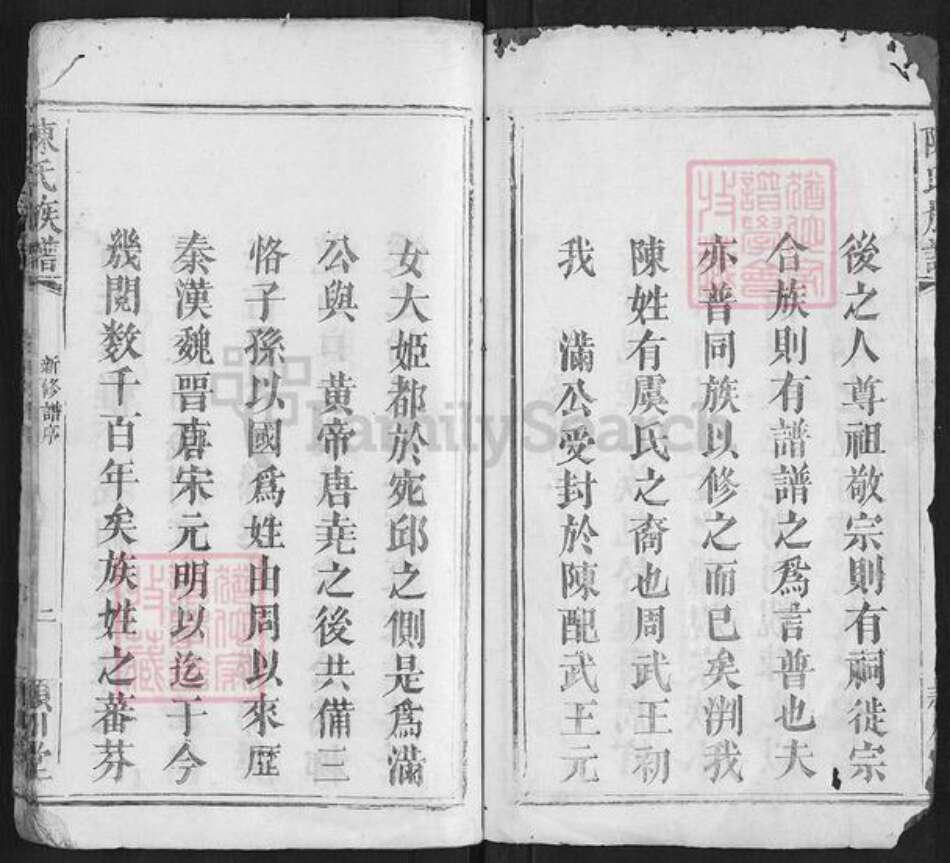 後之人尊祖敬宗則有祠徙宗
合族則有譜譜之爲言普也夫
亦普同族以修之而已矣溯我
陳姓有虞氏之裔也周武王初
我　滿公受封於陳配武王元
女大姬都於宛邱之側是爲滿
公與　黃帝唐堯之後共備三
恪子孫以國爲姓由周以來歷
秦漢魏晋唐宋元明以迄于今
幾閱数千百年矣族姓之蕃芬
陳氏族譜
新修譜序
二
潁川堂
FamilySearch